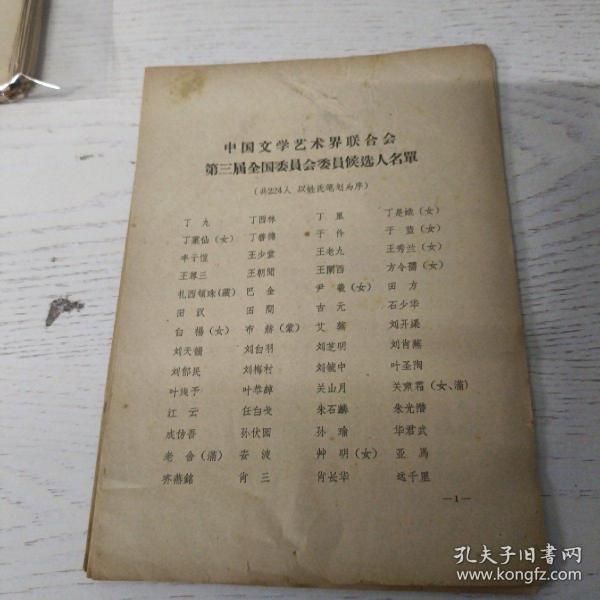 中国文学艺术界联合会
第三届全国委員会委員候选人名單
(共224人 以姓氏笔划为序)
丁 九 丁西林 丁 里 丁是娥(女)
丁果仙(女) 丁善德 于 伶 于 蓝(女)
丰子愷 王少堂 王老九 王秀兰(女)
王尊三 王朝聞 王闌西 方令孺(女)
扎西頓珠(藏) 巴 金 尹 羲(女) 田 方
田 汉 田 間 古 元 石少华
白 楊(女) 布 赫(蒙) 艾 蕪 刘开渠
刘天韻 刘白羽 刘芝明 刘肖蕪
刘郁民 刘梅村 刘毓中 叶圣陶
叶浅予 叶恭綽 关山月 关肃霜(女、滿)
江 云 任白戈 朱石麟 朱光潛
成仿吾 孙伏园 孙 瑜 华君武
老 舍(滿) 安 波 艸 明(女) 亚 馬
齐燕銘 肖 三 肖长华 远千里
—1—
孔夫子旧书网
www.kongfz.com